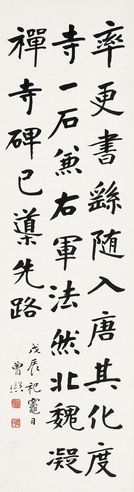 率更書繇随入唐其化度
寺一石兼右軍法然北魏凝
禪寺碑已導先路
戊辰祀竈日
曾熙